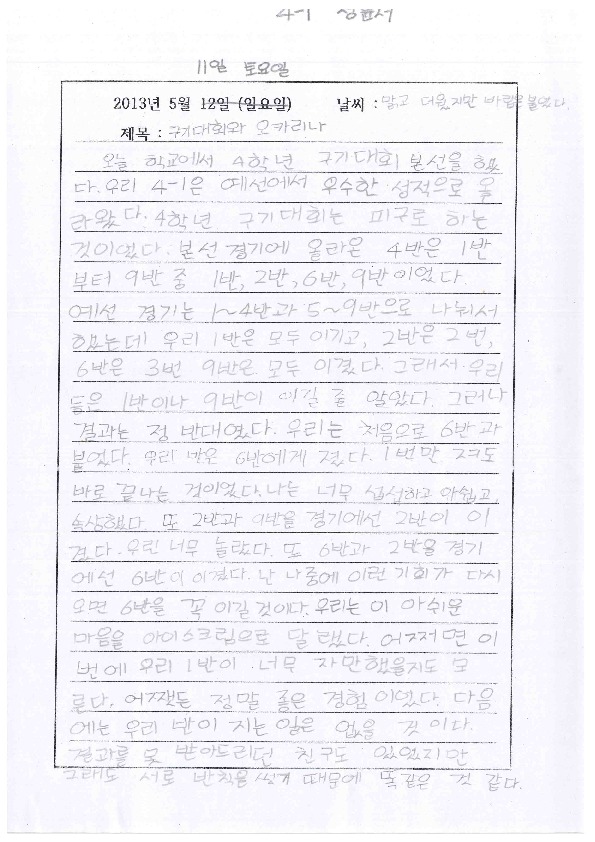 4-1
11일 토요일
2013년 5월 12일 (일요일) 날씨 : 맑고 더웠지만 바람은 불었다.
제목 : 구기대회와 오카리나
오늘 학교에서 4학년 구기대회 본선을 했
다. 우리 4-1은 예선에서 우수한 성적으로 올
라왔다. 4학년 구기대회는 피구로 하는
것이었다. 본선 경기에 올라온 4반은 1반
부터 9반 중 1반, 2반, 6반, 9반이었다.
예선 경기는 1~4반과 5~9반으로 나눠서
했는데 우리 1반은 모두 이기고, 2반은 2번,
6반은 3번 9반은 모두 이겼다. 그래서 우리
들은 1반이나 9반이 이길 줄 알았다. 그러나
결과는 정 반대였다. 우리는 처음으로 6반과
붙었다. 우리 반은 6반에게 졌다. 1번만 져도
바로 끝나는 것이었다. 나는 너무 섭섭하고 아쉽고,
속상했다. 또 2반과 9반을 경기에선 2반이 이
겼다. 우린 너무 놀랐다. 또 6반과 2반을 경기
에선 6반이 이겼다. 난 나중에 이런 기회가 다시
오면 6반을 꼭 이길 것이다. 우리는 이 아쉬운
마음을 아이스크림으로 달랬다. 어쩌면 이
번에 우리 1반이 너무 자만했을지도 모
른다. 어쨋든 정말 좋은 경험이었다. 다음
에는 우리 반이 지는 일은 없을 것이다.
결과를 못 받아드리던 친구도 있었지만
그래도 서로 반칙을 썼기 때문에 똑같은 것 같다.